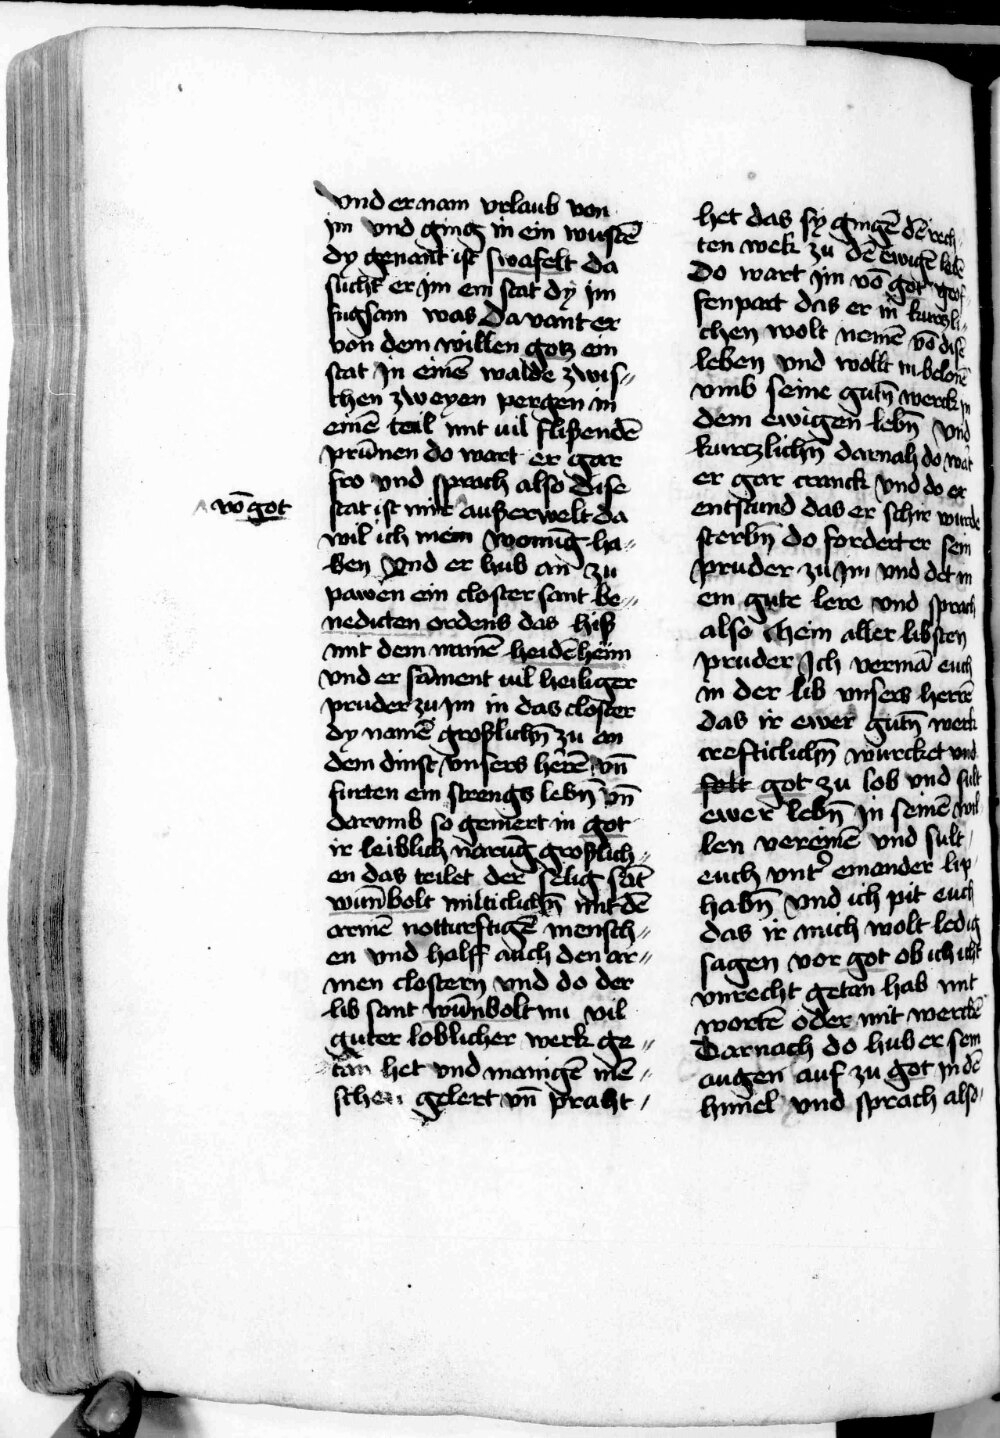 vnd er nam vrlaub von
im vnd ging in ein wustē
dy genant ist swafelt da
sucht er im ein stat dy im
fugsam was Da vant er
von dem willen gotz ein
stat In einē walde zwis〃
chen zweyen pergen in
einē teil mit uil flißendē
prūnen do wart er gar
fro vnd sprach also dise
vō got
stat ist mir außerwelt da
wil ich mein wonūg ha〃
ben Vnd er hub an zu
pawen ein closter sant be〃
nedicten ordens das hiß
mit dem namē heidēheim
vnd er sāment uil heiliger
pruder zu im in das closter
dy namē großlichn̄ zu an
dem dinst vnsers herrē vn̄
furten ein strengs lebn̄ vn̄
darvmb so gemert in got
ir leiblich narūg großlich〃
en das teilet der selig sāt
wūnbolt milticlichn̄ mit dē
armē notturftigē mensch〃
en vnd halff auch den ar〃
men clostern vnd do der
lib sant wūnbolt nu vil
guter loblicher werk ge〃
tan het vnd manigē mē〃
schen gelert vn̄ praht
het das sy gingē dē rech
ten wek zu dē ewigē lebē
Do wart im vō got geof
fenpart das er in kurczli〃
chen wolt nemē vō dise
leben vnd wolt in belonē
vmb seine gutn̄ werck in
dem ewigen lebn̄ vnd
kurczlichn̄ darnah do wart
er gar cranck vnd do er
entstund das er schir wurde
sterbn̄ do fordert er sein
pruder zu im vnd det in
ein gute lere vnd sprach
also mein aller libsten
pruder Ich vermā euch
in der lib vnsers herrē
das ir ewer gutn̄ werk
crefticlichn̄ wurcket vnd
solt got zu lob vnd sult
ewer lebn̄ in seinē wil
len vereinē vnd sult
euch vntꝰ einander lip
habn̄ vnd ich pit euch
das ir mich wolt ledig
sagen vor got ob ich icht
vnrecht getan hab mit
wortē oder mit werckē
Darnach do hub er sein
augen auf zu got in dē
himel vnd sprach also